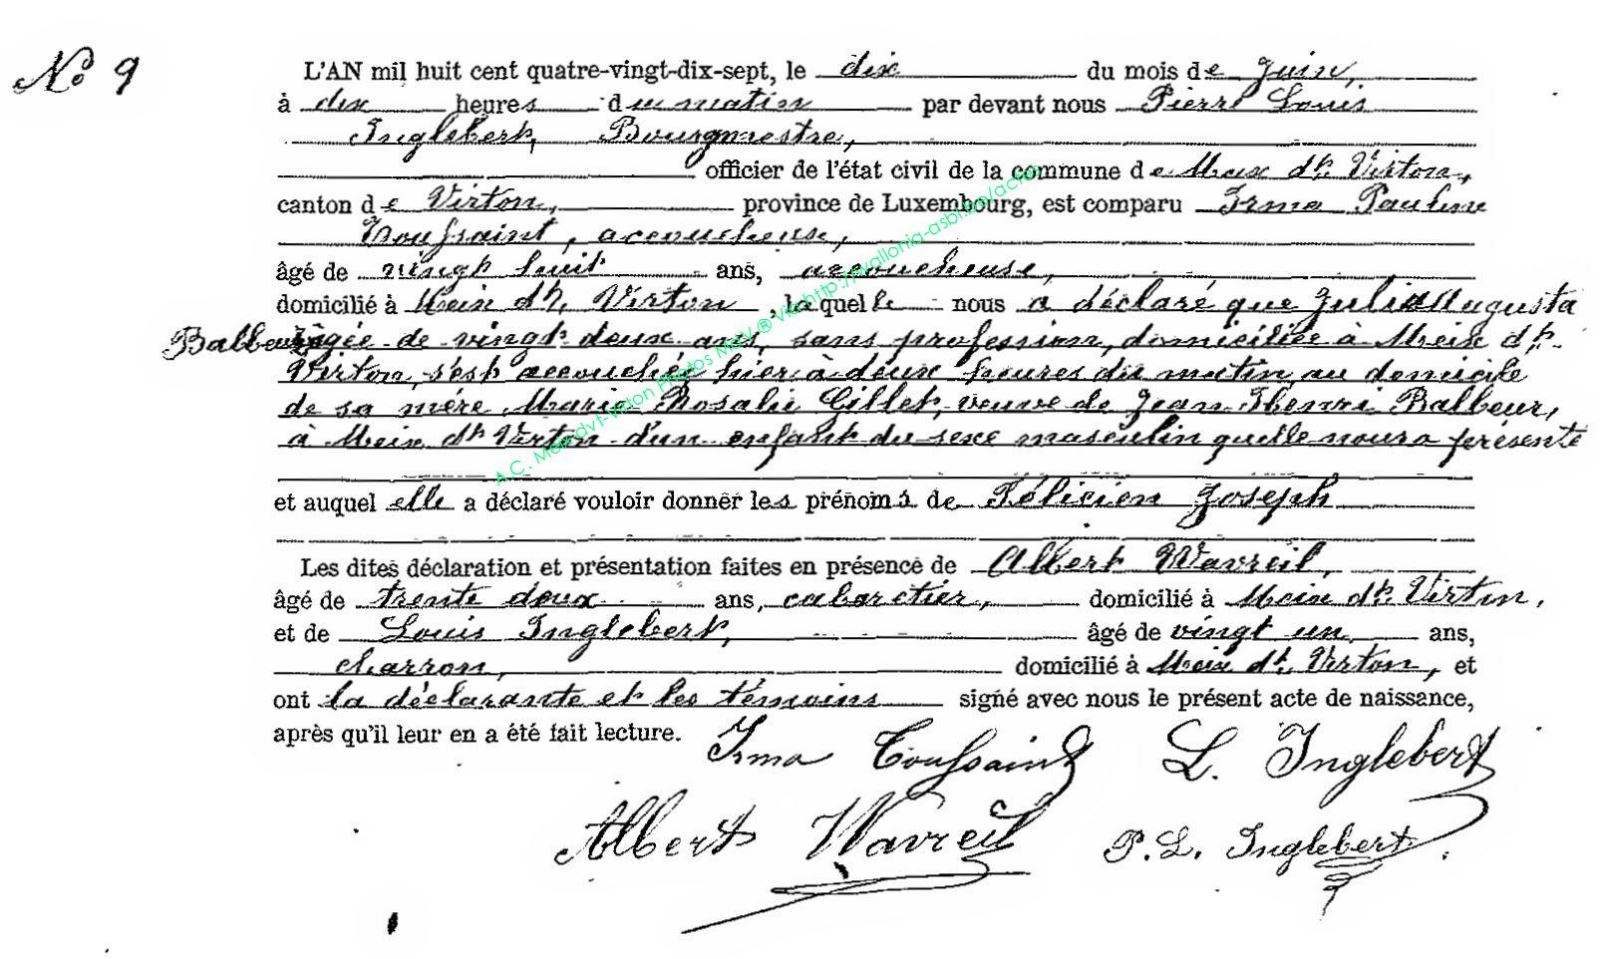 N° 9
L'AN mil huit cent quatre-vingt-dix-sept, le dix du mois de Juin,
à dix heures du matin par devant nous Pierre Louis
Inglebert, Bourgmestre,
officier de l'état civil de la commune de Meix dt Virton,
canton de Virton, province de Luxembourg, est comparu Irma Pauline
Toussaint, accoucheuse,
âgé de vingt huit ans, accoucheuse,
domicilié à Meix dt Virton, laquelle nous a déclaré que Julia Augusta
Balbeur âgée de vingt deux ans, sans profession, domiciliée à Meix dt
Virton, s'est accouchée hier à deux heures du matin, au domicile
de sa mère Marie Rosalie Gillet, veuve de Jean Henri Balbeur,
à Meix dt Virton d'un enfant du sexe masculin qu'elle nous a présenté
et auquel elle a déclaré vouloir donner les prénoms de Félicien Joseph
Les dites déclaration et présentation faites en présence de Albert Wavreil,
âgé de trente deux ans, cabaretier, domicilié à Meix dt Virton,
et de Louis Inglebert, âgé de vingt un ans,
charron, domicilié à Meix dt Virton, et
ont la déclarante et les témoins signé avec nous le présent acte de naissance,
après qu'il leur en a été fait lecture.
Irma Toussaint L. Inglebert
Albert Wavreil P. L. Inglebert